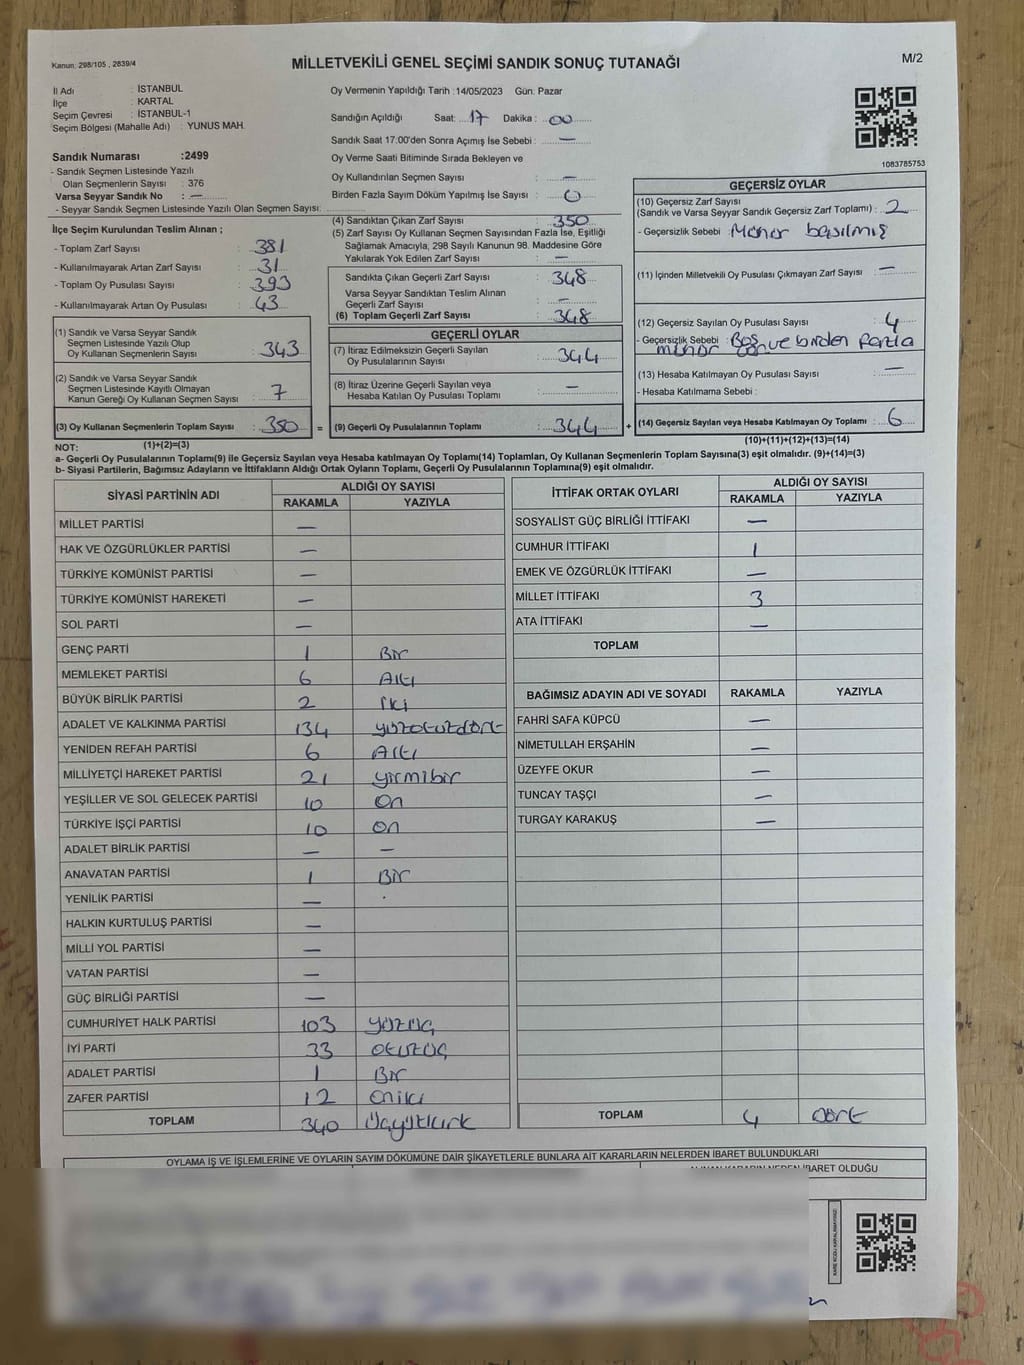 Kanun: 298/105 , 2839/4
MİLLETVEKİLİ GENEL SEÇİMİ SANDIK SONUÇ TUTANAĞI
M/2
İl Adı : İSTANBUL
İlçe : KARTAL
Seçim Çevresi : İSTANBUL-1
Seçim Bölgesi (Mahalle Adı) : YUNUS MAH.
Oy Vermenin Yapıldığı Tarih :14/05/2023 Gün: Pazar
Sandığın Açıldığı Saat: 17 Dakika : 00
Sandık Saat 17:00'den Sonra Açımış İse Sebebi : —
Oy Verme Saati Bitiminde Sırada Bekleyen ve
Oy Kullandırılan Seçmen Sayısı : —
Birden Fazla Sayım Döküm Yapılmış İse Sayısı : 0
1083785753
Sandık Numarası :2499
- Sandık Seçmen Listesinde Yazılı
Olan Seçmenlerin Sayısı : 376
Varsa Seyyar Sandık No : —
- Seyyar Sandık Seçmen Listesinde Yazılı Olan Seçmen Sayısı:
İlçe Seçim Kurulundan Teslim Alınan ;
- Toplam Zarf Sayısı : 381
- Kullanılmayarak Artan Zarf Sayısı : 31
- Toplam Oy Pusulası Sayısı : 393
- Kullanılmayarak Artan Oy Pusulası : 43
(1) Sandık ve Varsa Seyyar Sandık
Seçmen Listesinde Yazılı Olup
Oy Kullanan Seçmenlerin Sayısı : 343
(2) Sandık ve Varsa Seyyar Sandık
Seçmen Listesinde Kayıtlı Olmayan
Kanun Gereği Oy Kullanan Seçmen Sayısı : 7
(3) Oy Kullanan Seçmenlerin Toplam Sayısı : 350 =
(4) Sandıktan Çıkan Zarf Sayısı : 350
(5) Zarf Sayısı Oy Kullanan Seçmen Sayısından Fazla İse, Eşitliği
Sağlamak Amacıyla, 298 Sayılı Kanunun 98. Maddesine Göre
Yakılarak Yok Edilen Zarf Sayısı : —
Sandıkta Çıkan Geçerli Zarf Sayısı : 348
Varsa Seyyar Sandıktan Teslim Alınan
Geçerli Zarf Sayısı : —
(6) Toplam Geçerli Zarf Sayısı : 348
GEÇERLİ OYLAR
(7) İtiraz Edilmeksizin Geçerli Sayılan
Oy Pusulalarının Sayısı : 344
(8) İtiraz Üzerine Geçerli Sayılan veya
Hesaba Katılan Oy Pusulası Toplamı : —
(9) Geçerli Oy Pusulalarının Toplamı : 344 +
GEÇERSİZ OYLAR
(10) Geçersiz Zarf Sayısı
(Sandık ve Varsa Seyyar Sandık Geçersiz Zarf Toplamı) : 2
- Geçersizlik Sebebi : Mühür basılmış
(11) İçinden Milletvekili Oy Pusulası Çıkmayan Zarf Sayısı : —
(12) Geçersiz Sayılan Oy Pusulası Sayısı : 4
- Geçersizlik Sebebi : Boş ve birden fazla
mühür
(13) Hesaba Katılmayan Oy Pusulası Sayısı : —
- Hesaba Katılmama Sebebi :
(14) Geçersiz Sayılan veya Hesaba Katılmayan Oy Toplamı : 6
NOT: (1)+(2)=(3) (10)+(11)+(12)+(13)=(14)
a- Geçerli Oy Pusulalarının Toplamı(9) ile Geçersiz Sayılan veya Hesaba katılmayan Oy Toplamı(14) Toplamları, Oy Kullanan Seçmenlerin Toplam Sayısına(3) eşit olmalıdır. (9)+(14)=(3)
b- Siyasi Partilerin, Bağımsız Adayların ve İttifakların Aldığı Ortak Oyların Toplamı, Geçerli Oy Pusulalarının Toplamına(9) eşit olmalıdır.
SİYASİ PARTİNİN ADI ALDIĞI OY SAYISI
RAKAMLA YAZIYLA
MİLLET PARTİSİ —
HAK VE ÖZGÜRLÜKLER PARTİSİ —
TÜRKİYE KOMÜNİST PARTİSİ —
TÜRKİYE KOMÜNİST HAREKETİ —
SOL PARTİ —
GENÇ PARTİ 1 Bir
MEMLEKET PARTİSİ 6 Altı
BÜYÜK BİRLİK PARTİSİ 2 İki
ADALET VE KALKINMA PARTİSİ 134 yüzotuzdört
YENİDEN REFAH PARTİSİ 6 Altı
MİLLİYETÇİ HAREKET PARTİSİ 21 yirmibir
YEŞİLLER VE SOL GELECEK PARTİSİ 10 On
TÜRKİYE İŞÇİ PARTİSİ 10 On
ADALET BİRLİK PARTİSİ — —
ANAVATAN PARTİSİ 1 Bir
YENİLİK PARTİSİ —
HALKIN KURTULUŞ PARTİSİ —
MİLLİ YOL PARTİSİ —
VATAN PARTİSİ —
GÜÇ BİRLİĞİ PARTİSİ —
CUMHURİYET HALK PARTİSİ 103 yüzüç
İYİ PARTİ 33 otuzüç
ADALET PARTİSİ 1 Bir
ZAFER PARTİSİ 12 Oniki
TOPLAM 340 Üçyüzkırk
İTTİFAK ORTAK OYLARI ALDIĞI OY SAYISI
RAKAMLA YAZIYLA
SOSYALİST GÜÇ BİRLİĞİ İTTİFAKI —
CUMHUR İTTİFAKI 1
EMEK VE ÖZGÜRLÜK İTTİFAKI —
MİLLET İTTİFAKI 3
ATA İTTİFAKI —
TOPLAM
BAĞIMSIZ ADAYIN ADI VE SOYADI RAKAMLA YAZIYLA
FAHRİ SAFA KÜPCÜ —
NİMETULLAH ERŞAHİN —
ÜZEYFE OKUR —
TUNCAY TAŞÇI —
TURGAY KARAKUŞ —
TOPLAM 4 Dört
OYLAMA İŞ VE İŞLEMLERİNE VE OYLARIN SAYIM DÖKÜMÜNE DAİR ŞİKAYETLERLE BUNLARA AİT KARARLARIN NELERDEN İBARET BULUNDUKLARI
İBARET OLDUĞU